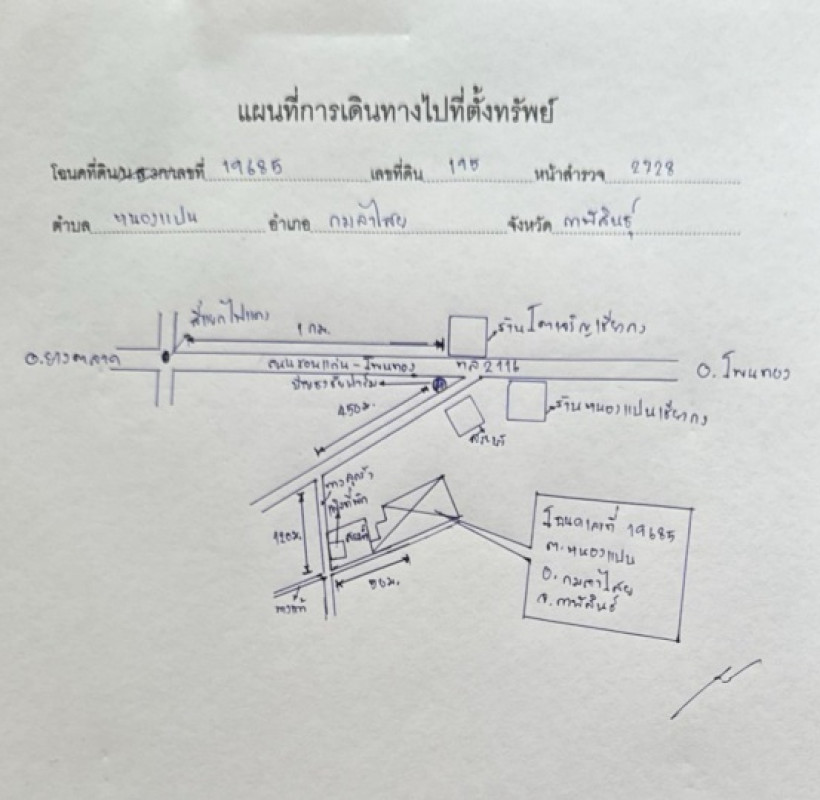 แผนที่การเดินทางไปที่ตั้งทรัพย์
โฉนดที่ดิน เลขที่ 19685 เลขที่ดิน 195 หน้าสำรวจ 2728
ตำบล หนองแปน อำเภอ กมลาไสย จังหวัด กาฬสินธุ์
สี่แยกไฟแดง
1 กม.
ร้านโตเจริญเซี่ยกง
อ.ยางตลาด
ถนนขอนแก่น-โพนทอง
ทล 2116
อ.โพนทอง
450 ม.
ร้านหนองแปนเซี่ยกง
สระน้ำ
120 ม.
80 ม.
โฉนดเลขที่ 19685
ต.หนองแปน
อ.กมลาไสย
จ.กาฬสินธุ์